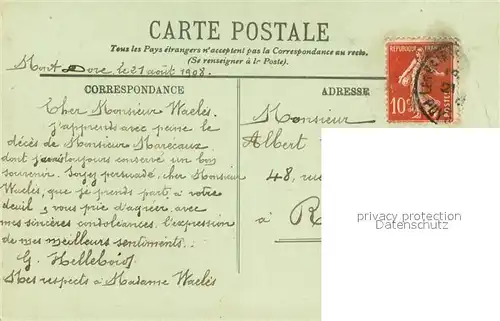 CARTE POSTALE
Tous les Pays étrangers n'acceptent pas la Correspondance au recto.
(Se renseigner à la Poste).
Mont Dore, le 21 août 1908.
CORRESPONDANCE
ADRESSE
REPUBLIQUE FRANÇAISE
10
POSTES
Cher Monsieur Waclès
J'apprends avec peine le
décès de Monsieur Marecaux
dont j'avais toujours conservé un bon
souvenir. Soyez persuadé, cher Monsieur
Waclès, que je prends part à votre
deuil & vous prie d'agréer avec
mes sincères condoléances, l'expression
de mes meilleurs sentiments.
G. Hellebois
Mes respects à Madame Waclès
Monsieur
Albert
48, rue
à R
privacy protection
Datenschutz